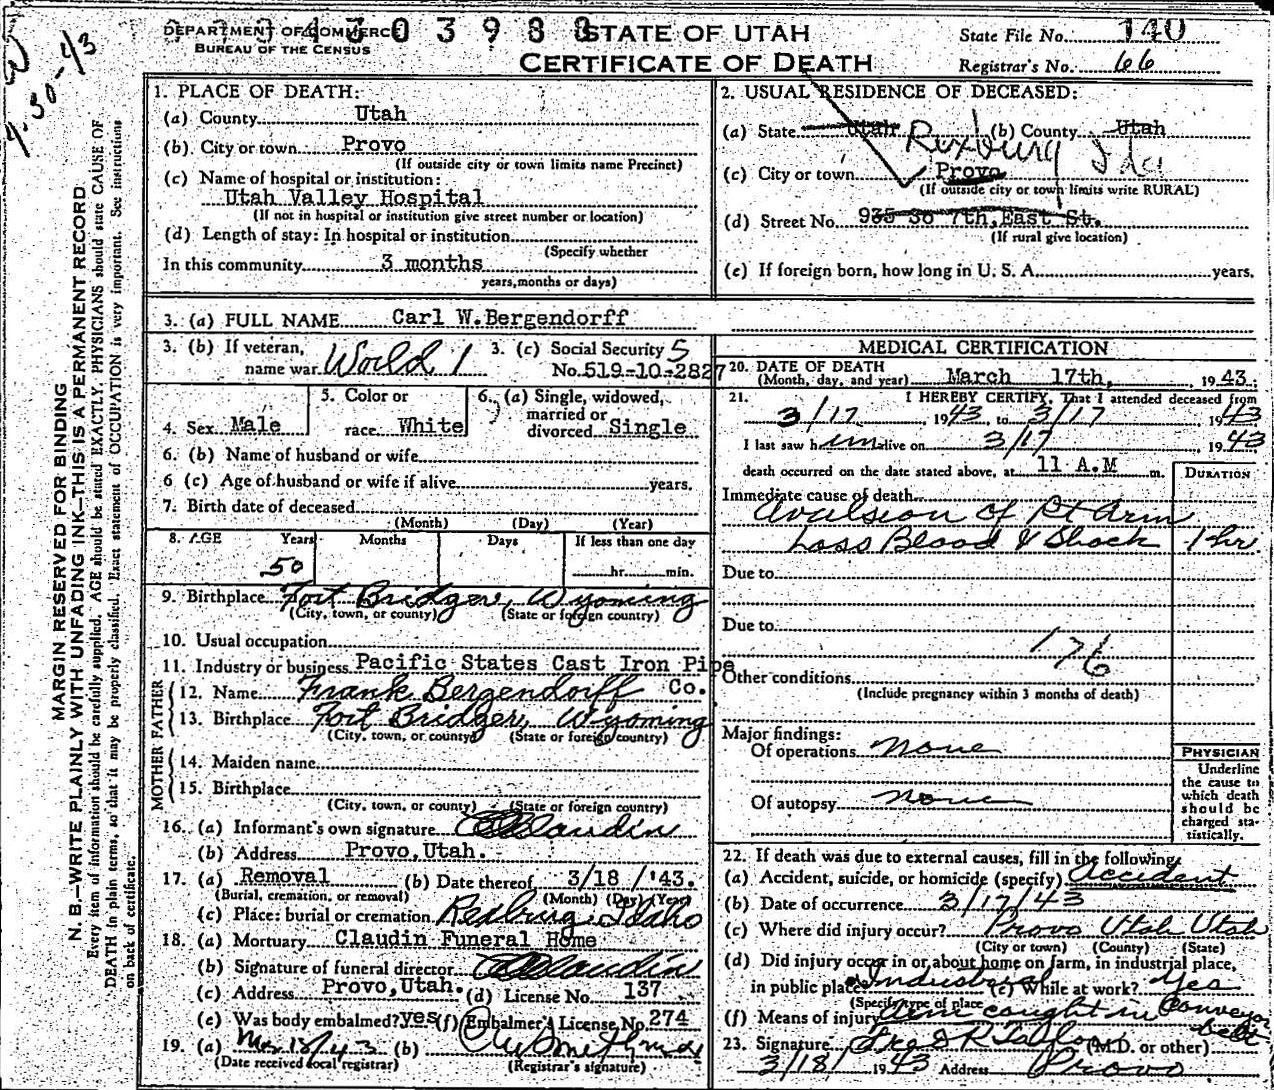 DEPARTMENT OF COMMERCE
BUREAU OF THE CENSUS
STATE OF UTAH
CERTIFICATE OF DEATH
State File No. 140
Registrar's No. 66
4-30-43
MARGIN RESERVED FOR BINDING
N. B.—WRITE PLAINLY WITH UNFADING INK—THIS IS A PERMANENT RECORD.
Every item of information should be carefully supplied. AGE should be stated EXACTLY. PHYSICIANS should state CAUSE OF
DEATH in plain terms, so that it may be properly classified. Exact statement of OCCUPATION is very important. See instructions
on back of certificate.
1. PLACE OF DEATH:
(a) County Utah
(b) City or town Provo
(If outside city or town limits name Precinct)
(c) Name of hospital or institution:
Utah Valley Hospital
(If not in hospital or institution give street number or location)
(d) Length of stay: In hospital or institution
(Specify whether
In this community 3 months
years, months or days)
2. USUAL RESIDENCE OF DECEASED:
(a) State Utah Rexburg Ida (b) County Utah
(c) City or town Provo
(If outside city or town limits write RURAL)
(d) Street No. 935 So 7th, East St.
(If rural give location)
(e) If foreign born, how long in U. S. A. years.
3. (a) FULL NAME Carl W. Bergendorff
3. (b) If veteran, name war World 1
3. (c) Social Security No. 519-10-2827
4. Sex Male
5. Color or race White
6. (a) Single, widowed, married or divorced Single
6. (b) Name of husband or wife
6 (c) Age of husband or wife if alive years.
7. Birth date of deceased
(Month) (Day) (Year)
8. AGE Years Months Days If less than one day
50 hr. min.
9. Birthplace Fort Bridger, Wyoming
(City, town, or county) (State or foreign country)
10. Usual occupation
11. Industry or business Pacific States Cast Iron Pipe Co.
FATHER
12. Name Frank Bergendorff
13. Birthplace Fort Bridger, Wyoming
(City, town, or county) (State or foreign country)
MOTHER
14. Maiden name
15. Birthplace
(City, town, or county) (State or foreign country)
16. (a) Informant's own signature Claudin
(b) Address Provo, Utah.
17. (a) Removal (b) Date thereof 3/18/'43.
(Burial, cremation, or removal) (Month) (Day) (Year)
(c) Place: burial or cremation Rexburg, Idaho
18. (a) Mortuary Claudin Funeral Home
(b) Signature of funeral director Claudin
(c) Address Provo, Utah. (d) License No. 137
(e) Was body embalmed? yes (f) Embalmer's License No. 274
19. (a) Mar 18/43 (b)
(Date received local registrar) (Registrar's signature)
MEDICAL CERTIFICATION
20. DATE OF DEATH
(Month, day, and year) March 17th, 1943.
21. I HEREBY CERTIFY, That I attended deceased from
3/17 1943, to 3/17 1943
I last saw him alive on 3/17 1943
death occurred on the date stated above, at 11 A.M m.
DURATION
Immediate cause of death
Avulsion of Rt Arm
Loss Blood & Shock 1 hr
Due to
Due to
176
Other conditions
(Include pregnancy within 3 months of death)
Major findings:
Of operations none
Of autopsy none
PHYSICIAN
Underline
the cause to
which death
should be
charged sta-
tistically.
22. If death was due to external causes, fill in the following:
(a) Accident, suicide, or homicide (specify) Accident
(b) Date of occurrence 3/17/43
(c) Where did injury occur? Provo Utah Utah
(City or town) (County) (State)
(d) Did injury occur in or about home on farm, in industrial place,
in public place? Industrial (e) While at work? Yes
(Specify type of place
(f) Means of injury Arm caught in Conveyor belt
23. Signature (M.D. or other)
3/18/ 1943 Address Provo